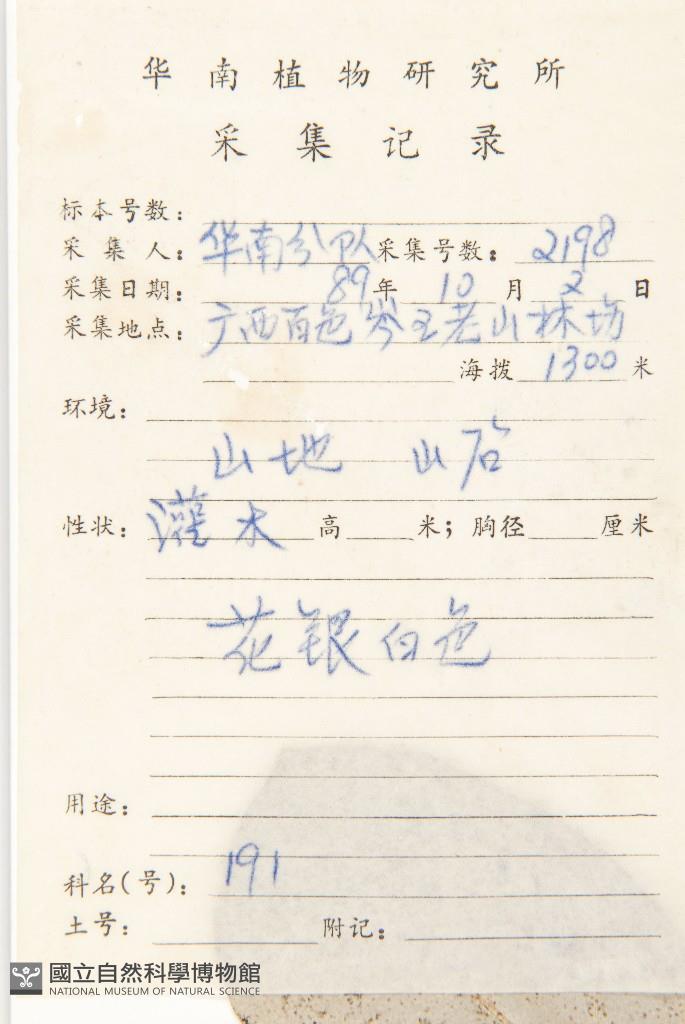 华南植物研究所
采集记录
标本号数：
采集人：华南分队采集号数：2198
采集日期：89年10月2日
采集地点：广西百色岑王老山林场
海拨1300米
环境：
山地 山谷
性状：灌木 高 米；胸径 厘米
花银白色
用途：
科名(号)：191
土号： 附记：
國立自然科學博物館
NATIONAL MUSEUM OF NATURAL SCIENCE